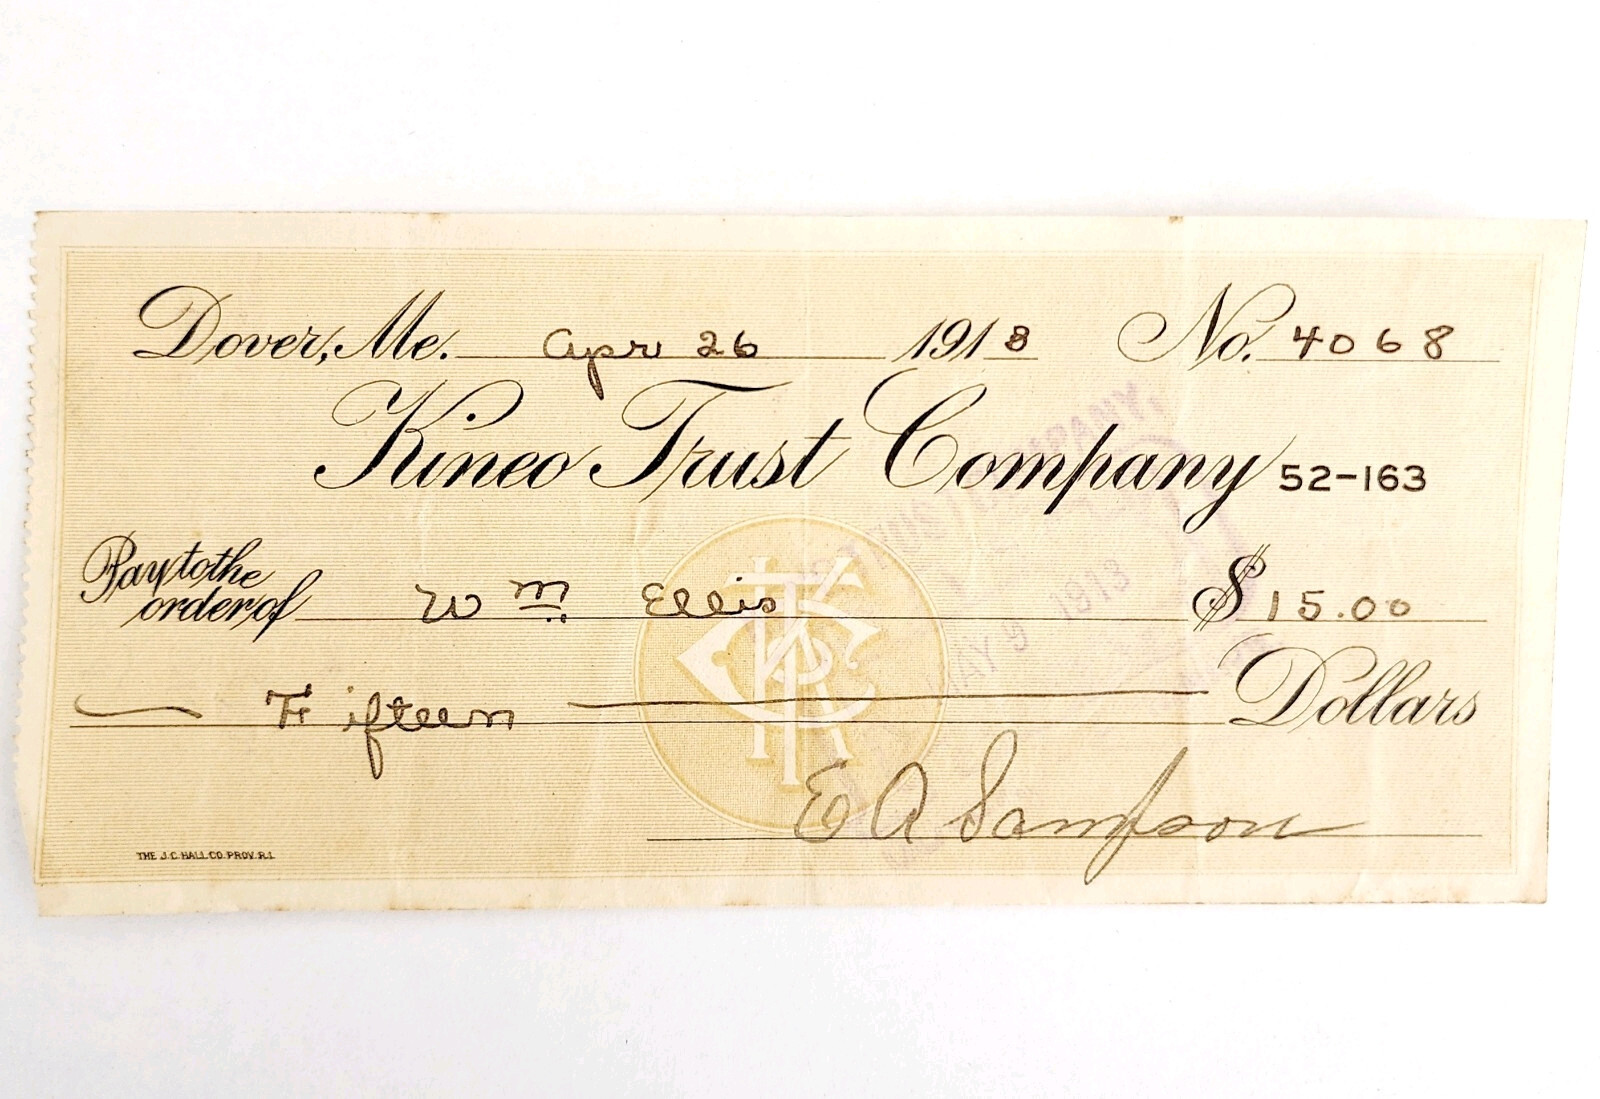 Dover, Me. Apr 26 1913 No. 4068
Kineo Trust Company 52-163
Pay to the
order of Wm. Ellis $15.00
Fifteen Dollars
E A Sampson
THE J.C. HALL CO. PROV. R.I.
TRUST COMPANY,
MAY 9 1913